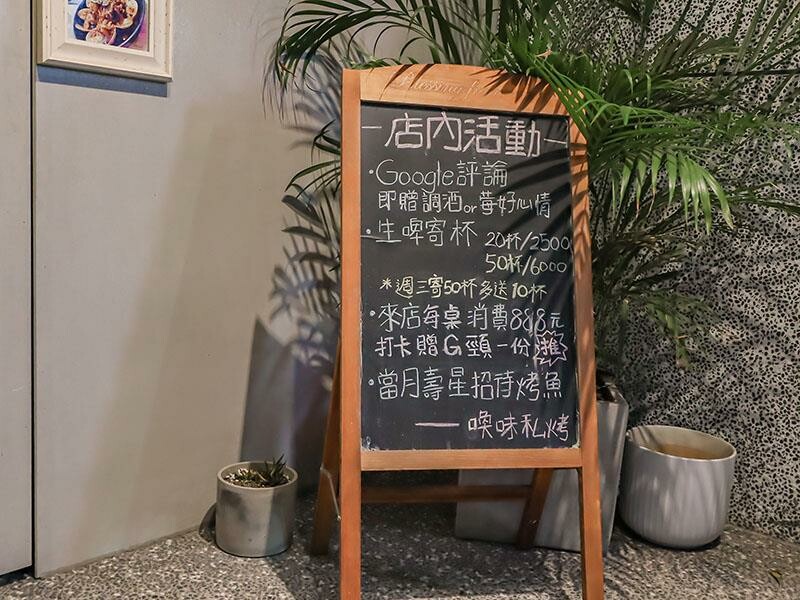 店內活動
·Google評論
即贈調酒or莓好心情
·生啤寄杯 20杯/2500
50杯/6000
*週三寄50杯多送10杯
·來店每桌消費888元
打卡贈G頸一份
·當月壽星招待烤魚
—喚味私烤